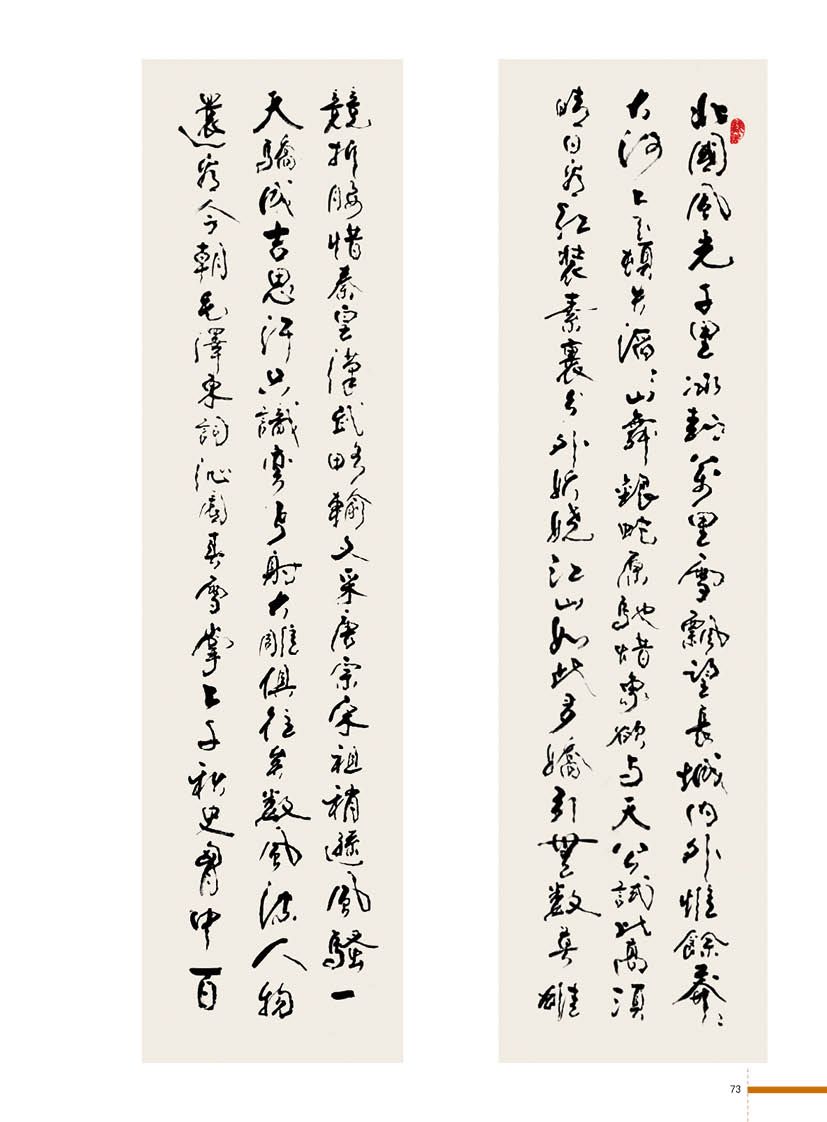 北國風光千里冰封萬里雪飄望長城内外惟餘莽〻
大河上下頓失滔〻山舞銀蛇原馳蜡象欲与天公試比高須
晴日看紅裝素裹分外妖嬈江山如此多嬌引無數英雄
競折腰惜秦皇漢武略輸文采唐宗宋祖稍遜風騷一
天驕成吉思汗只識彎弓射大雕俱往矣數風流人物
還看今朝毛澤東詞沁園春雪掌上千秋史胸中百
73